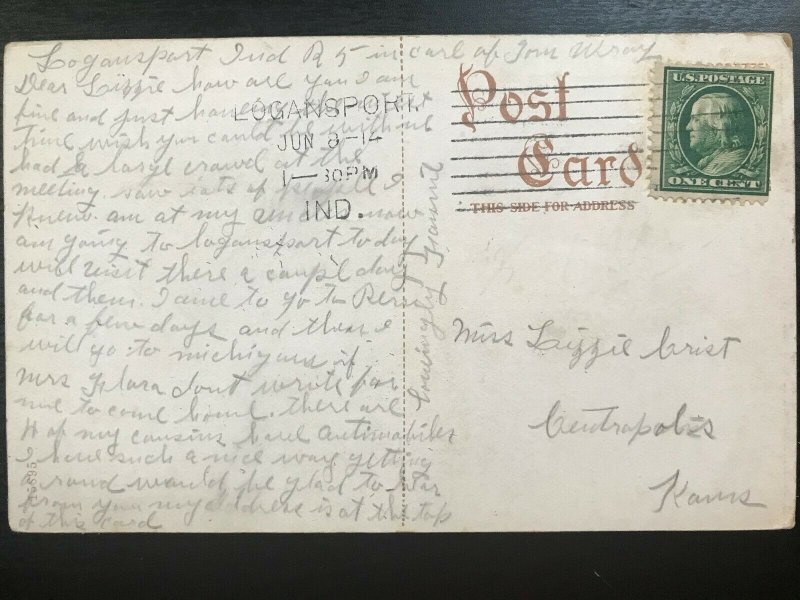 Logansport Ind R 5 in carl of Tom Wray
Dear Lizzie how are you I am
fine and just having the
time wish you could be with me
had a large crowd at the
meeting. saw lots of people I
knew. am at my now
am going to logansport today
will visit there a coupl days
and then I aime to go to Peru
for a few days and then I
will go to michigan if
mrs Flora dont wrote for
me to come home. there are
4 of my cousins have automobiles
I have such a nice way getting
a round would be glad to hear
from you my address is at the top
of this card
Lovingly
LOGANSPORT,
JUN 8-14
1—30PM
IND.
Post
Card
THIS SIDE FOR ADDRESS
U.S.POSTAGE
ONE CENT
Miss Lizzie Crist
Centrapolis
Kans